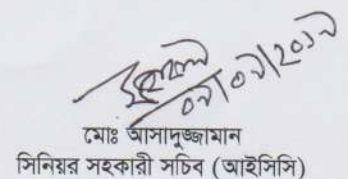 ০৭/০৭/২০১৭
মোঃ আসাদুজ্জামান
সিনিয়র সহকারী সচিব (আইসিসি)